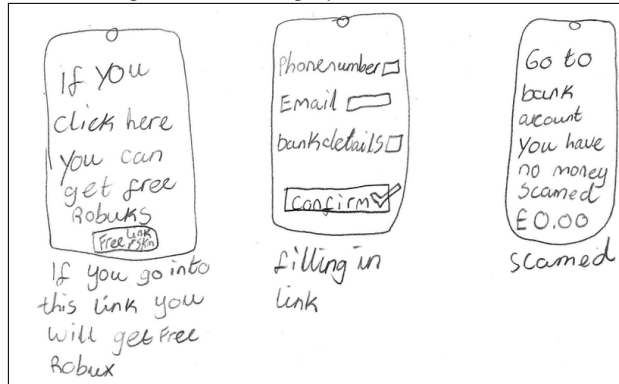 If you
click here
you can
get free
Robuks
Free link
+skin
If you go into
this link you
will get Free
Robux
Phonenumber
Email
bankdetails
Confirm
filling in
link
Go to
bank
acount
you have
no money
scamed
£0.00
scamed